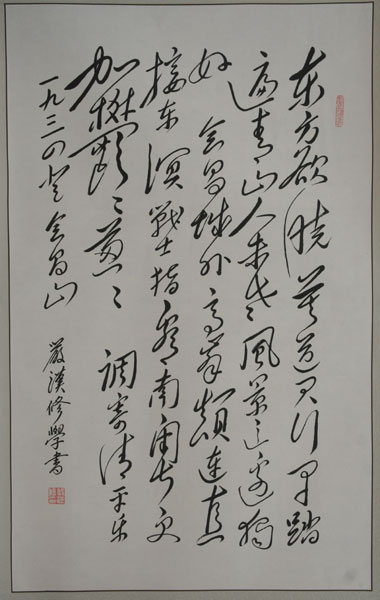 东方欲晓莫道君行早踏
遍青山人未老风景这边独
好 会昌城外高峰颠连直
接东溟戰士指看南粤更
加鬱々葱々
調寄清平乐
一九三四登会昌山
嚴漢修學書